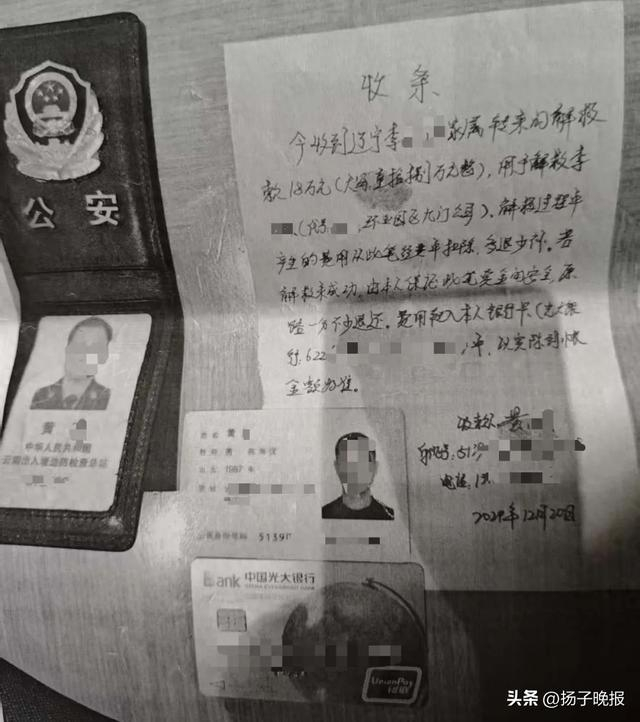 公安
黄
中华人民共和国
云南出入境边防检查总站
收条
今收到辽宁李 家属转来的解救
款18万元(大写壹拾捌万元整),用于解救李
(代号 园区大门公司)。解救过程中
产生的费用从此笔经费中扣除,多退少补。若
解救未成功,由本人保证此笔资金的安全,原
路一分不少退还。费用汇入本人银行卡(光大银
行:622 )中,以实际到账
金额为准。
收款人:黄
身份证号:5139
电话:1
2024年12月20日
姓名 黄
性别 男 民族 汉
出生 1987 年
住址
公民身份号码 5139
Bank 中国光大银行
CHINA EVERBRIGHT BANK
UnionPay
银联
头条 @扬子晚报